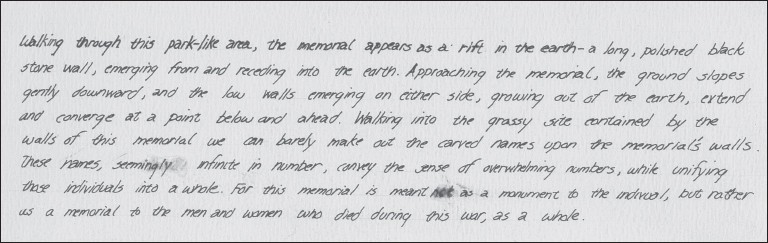 Walking through this park-like area, the memorial appears as a rift in the earth - a long, polished black
stone wall, emerging from and receding into the earth. Approaching the memorial, the ground slopes
gently downward, and the low walls emerging on either side, growing out of the earth, extend
and converge at a point below and ahead. Walking into the grassy site contained by the
walls of this memorial we can barely make out the carved names upon the memorial's walls.
These names, seemingly infinite in number, convey the sense of overwhelming numbers, while unifying
those individuals into a whole. For this memorial is meant not as a monument to the indivual, but rather
as a memorial to the men and women who died during this war, as a whole.